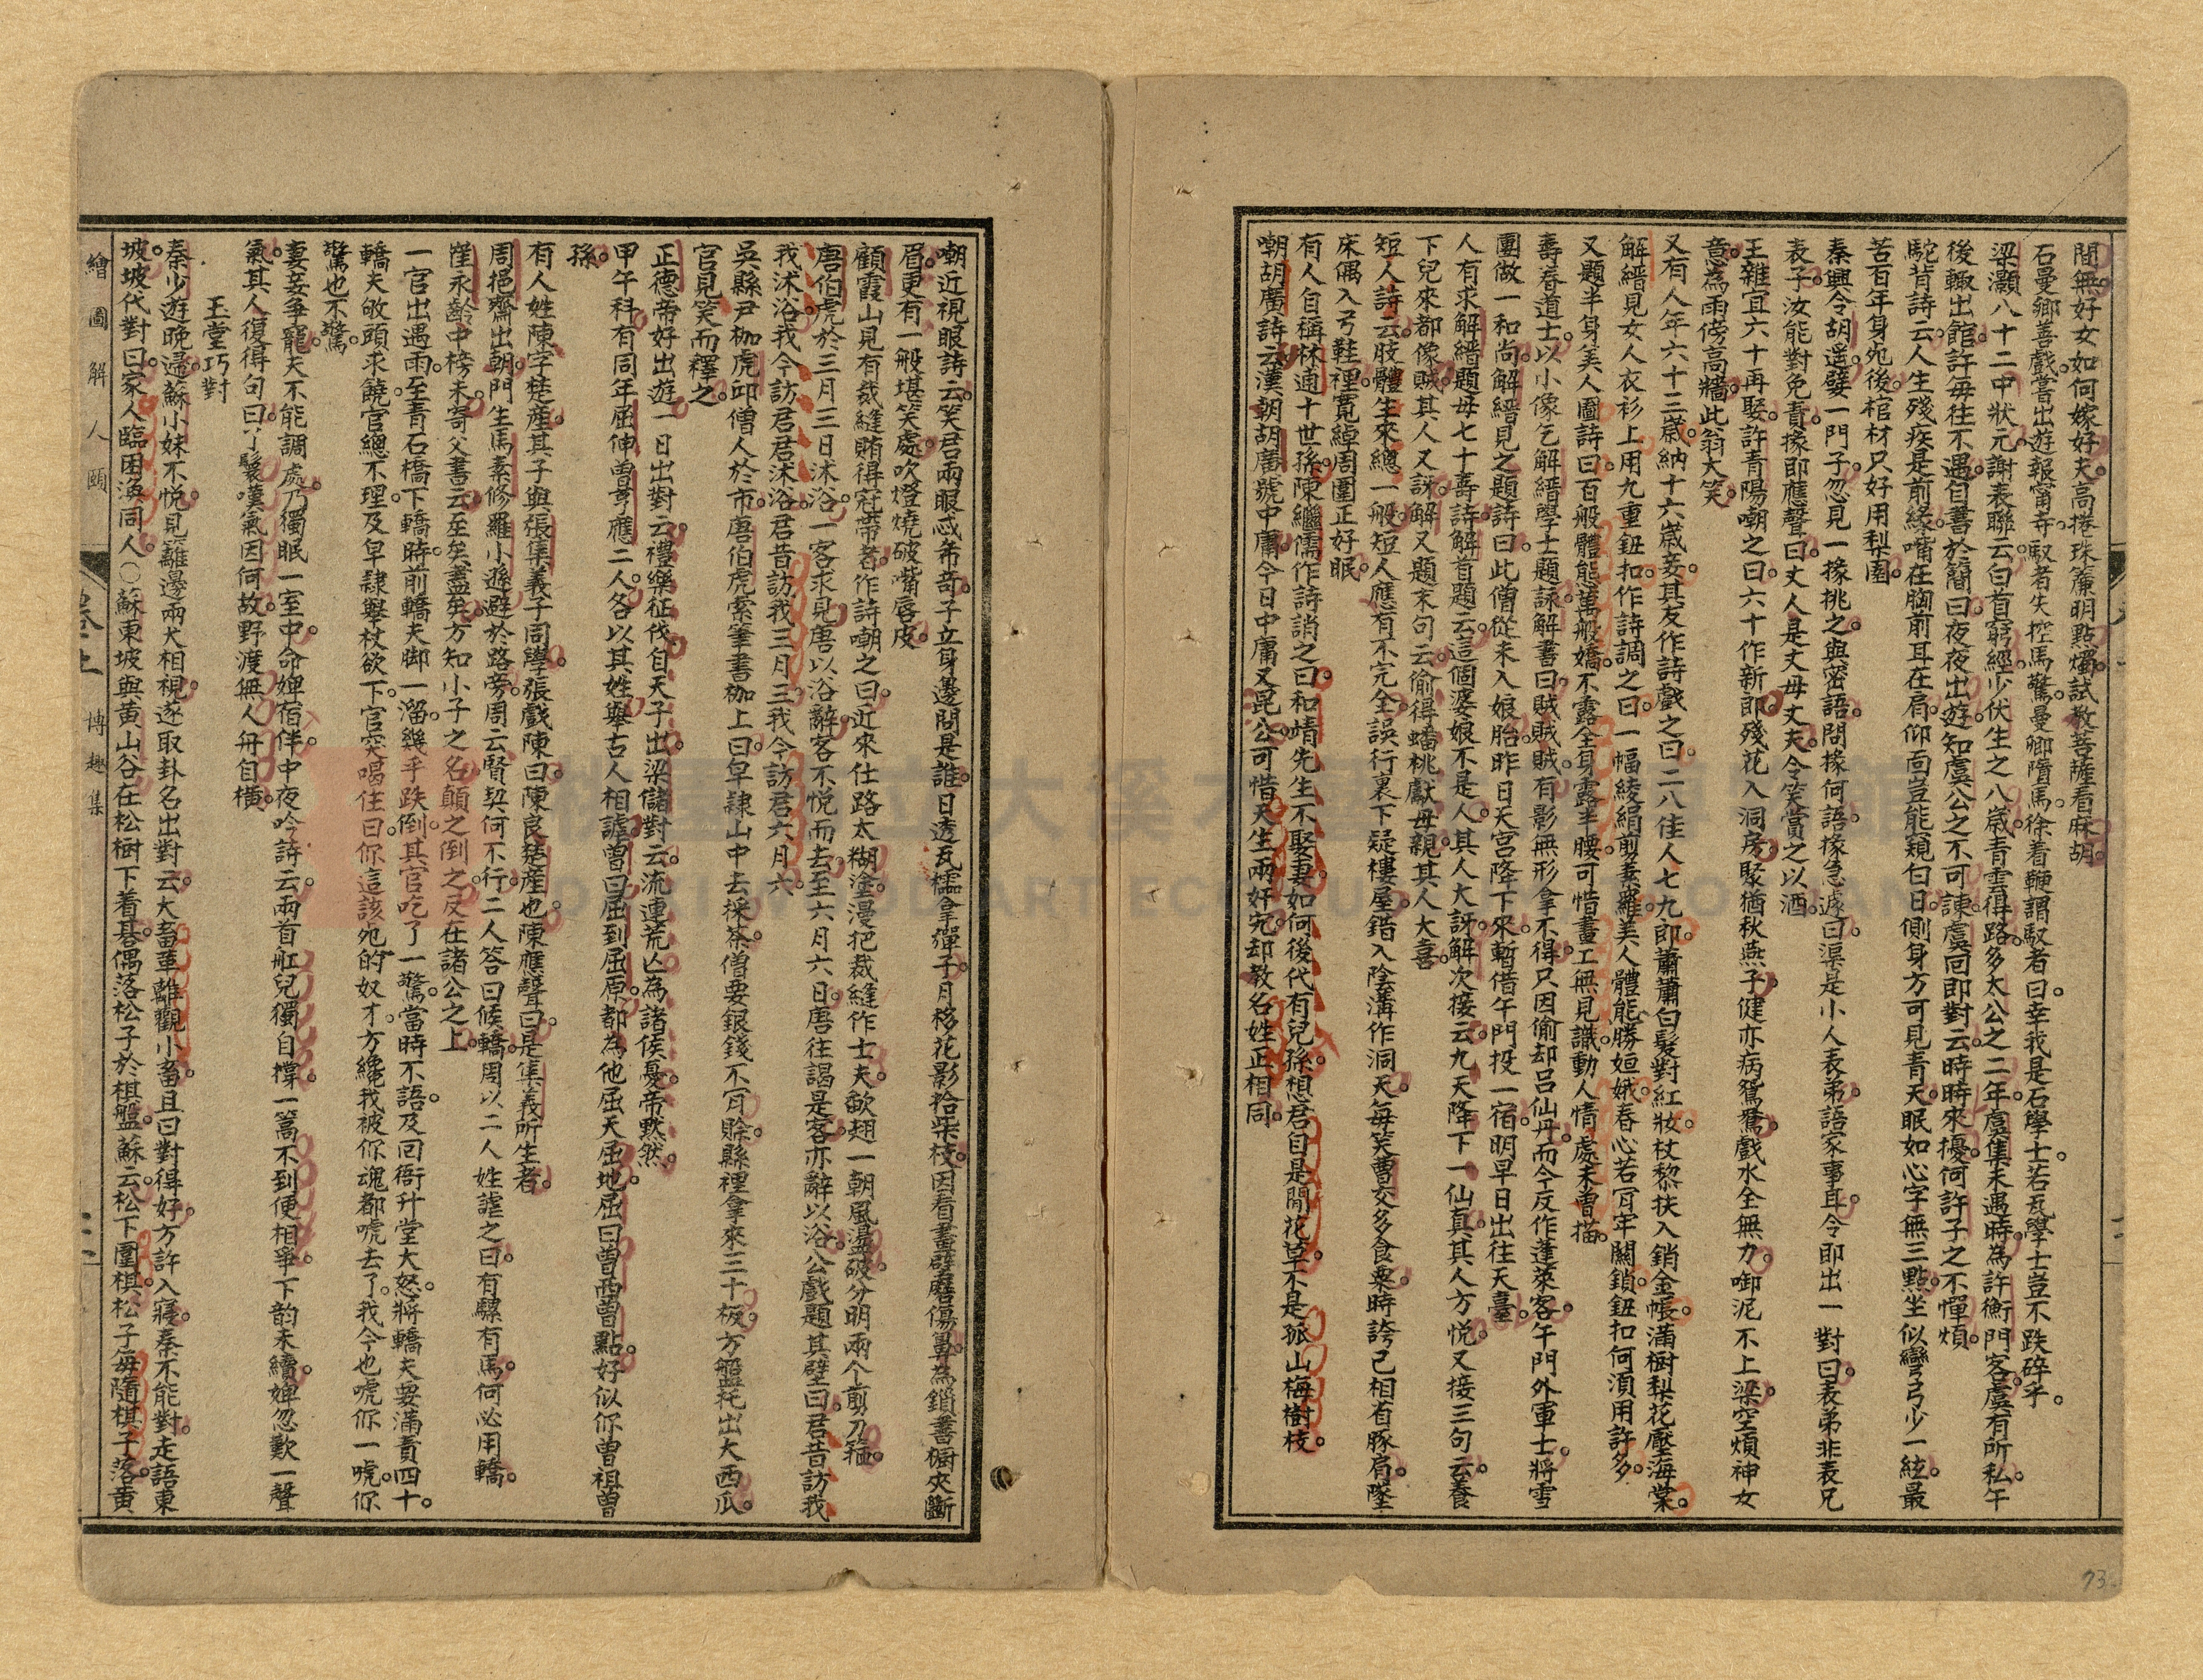 間無好女如何嫁好夫高捲珠簾明點燭試教菩薩看麻胡
石曼卿善戲嘗出遊報甯寺馭者失控馬驚曼卿墮馬徐着鞭謂馭者曰幸我是石學士若瓦學士豈不跌碎乎
梁灝八十二中狀元謝表聯云白首窮經少伏生之八歲青雲得路多太公之二年虞集未遇時為許衡門客虞有所私午
後輒出館許每往不遇自書於簡曰夜夜夜出遊知虞公之不可諫虞回即對云時時來擾何許子之不憚煩
駝背詩云人生殘疾是前緣嘴在胸前耳在肩仰面豈能窺白日側身方可見青天眠如心字無三點坐似彎弓少一絃最
苦百年身死後棺材只好用梨園
秦興令胡遥嬖一門子忽見一掾挑之與密語問掾何語掾急遽曰渠是小人表弟語家事耳令即出一對曰表弟非表兄
表子汝能對免責掾即應聲曰丈人是丈母丈夫令笑賞之以酒
王雜宜六十再娶許青陽嘲之曰六十作新郎殘花入洞房聚猶秋燕子健亦病鴛鴦戲水全無力啣泥不上梁空煩神女
意為雨傍高牆此翁大笑
又有人年六十三歲納十六歲妾其友作詩戲之曰二八佳人七九郎蕭蕭白髮對紅妝杖黎扶入銷金帳滿樹梨花壓海棠
解縉見女人衣衫上用九重鈕扣作詩調之曰一幅綾絹剪素羅美人體能勝姮娥春心若肯牢關鎖鈕扣何須用許多
又題半身美人圖詩曰百般體能萬般嬌不露全身露半腰可惜畫工無見識動人情處未曾描
壽春道士以小像乞解縉學士題詠解書曰賊賊賊有影無形拿不得只因偷却呂仙丹而今反作蓬萊客午門外軍士將雪
團做一和尚解縉見之題詩曰此僧從未入娘胎昨日天宫降下來暫借午門投一宿明早日出往天臺
人有求解縉題母七十壽詩解首題云這個婆娘不是人其人大訝解次接云九天降下一仙真其人方悦又接三句云養
下兒來都像賊其人又訝解又題末句云偷得蟠桃獻母親其人大喜
短人詩云肢體生來總一般短人應有不完全誤行裏下疑樓屋錯入陰溝作洞天每笑曹交多食粟時誇己相省豚肩墜
床偶入弓鞋裡寬綽周圍正好眠
有人自稱林逋十世孫陳繼儒作詩誚之曰和靖先生不娶妻如何後代有兒孫想君自是閒花草不是孤山梅樹枝
嘲胡廣詩云漢朝胡廣號中庸今日中庸又昆公可惜天生兩好究却教名姓正相同
嘲近視眼詩云笑君兩眼忒希奇子立身邊問是誰日透瓦檽拿彈子月移花影拾柴枝因看畫壁磨傷鼻為鎖書櫥夾斷
眉更有一般堪笑處吹燈燒破嘴唇皮
顧霞山見有裁縫賄得冠帶者作詩嘲之曰近來仕路太糊塗漫把裁縫作士夫歙翅一朝風盪破分明兩个剪刀箍
唐伯虎於三月三日沐浴一客求見唐以浴辭客不悦而去至六月六日唐往謁是客亦辭以浴公戲題其壁曰君昔訪我
我沭浴我今訪君君沭浴君昔訪我三月三我今訪君六月六
吳縣尹枷虎邱僧人於市唐伯虎索筆書枷上曰皁隸山中去採茶僧要銀錢不肯賒縣裡拿來三十板方盤托出大西瓜
官見笑而釋之
正德帝好出遊一日出對云禮樂征伐自天子出梁儲對云流連荒亡為諸侯憂帝默然
甲午科有同年屈伸曾孝應二人各以其姓舉古人相謔曾曰屈到屈原都為他屈天屈地屈曰曾西曾點好似你曾祖曾
孫
有人姓陳字楚產其子與張集義子同學張戲陳曰陳良楚產也陳應聲曰是集義所生者
周挹齋出朝門生馬素修羅小遜避於路旁周云賢契何不行二人答曰候轎周以二人姓謔之曰有騾有馬何必用轎
崔永齡中榜未寄父書云至矣盡矣方知小子之名顛之倒之反在諸公之上
一官出遇雨至青石橋下轎時前轎夫脚一溜幾乎跌倒其官吃了一驚當時不語及回衙升堂大怒將轎夫要滿責四十
轎夫敂頭求饒官總不理及皁隸舉杖欲下官突喝住曰你這該死的奴才方纔我被你魂都唬去了我今也唬你一唬你
驚也不驚
妻妾爭寵夫不能調處乃獨眠一室中命婢宿伴中夜吟詩云兩首舡兒獨自撑一篙不到便相爭下韵未續婢忽歎一聲
氣其人復得句曰了鬟嘆氣因何故野渡無人舟自橫
玉堂巧對
秦少遊晚歸蘇小妹不悦見籬邊兩犬相視遂取卦名出對云大畜革離觀小畜且曰對得好方許入寢秦不能對走語東
坡坡代對曰家人臨困渙同人〇蘇東坡與黃山谷在松樹下着碁偶落松子於棋盤蘇云松下圍棋松子每隨棋子落黄
繪圖解人頤
卷之上
博趣集
73